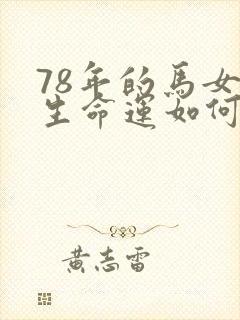 78年的馬女
生命運如何
黃志雷